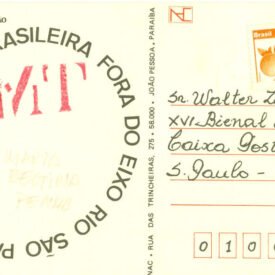 BRASILEIRA FORA DO EIXO RIO SÃO PA
MT
NAC - RUA DAS TRINCHEIRAS, 275 - 58.000 - JOÃO PESSOA, PARAÍBA
Brasil
Sr. Walter Z
XVI Bienal
Caixa Post
S. Paulo -
0 1 0 0